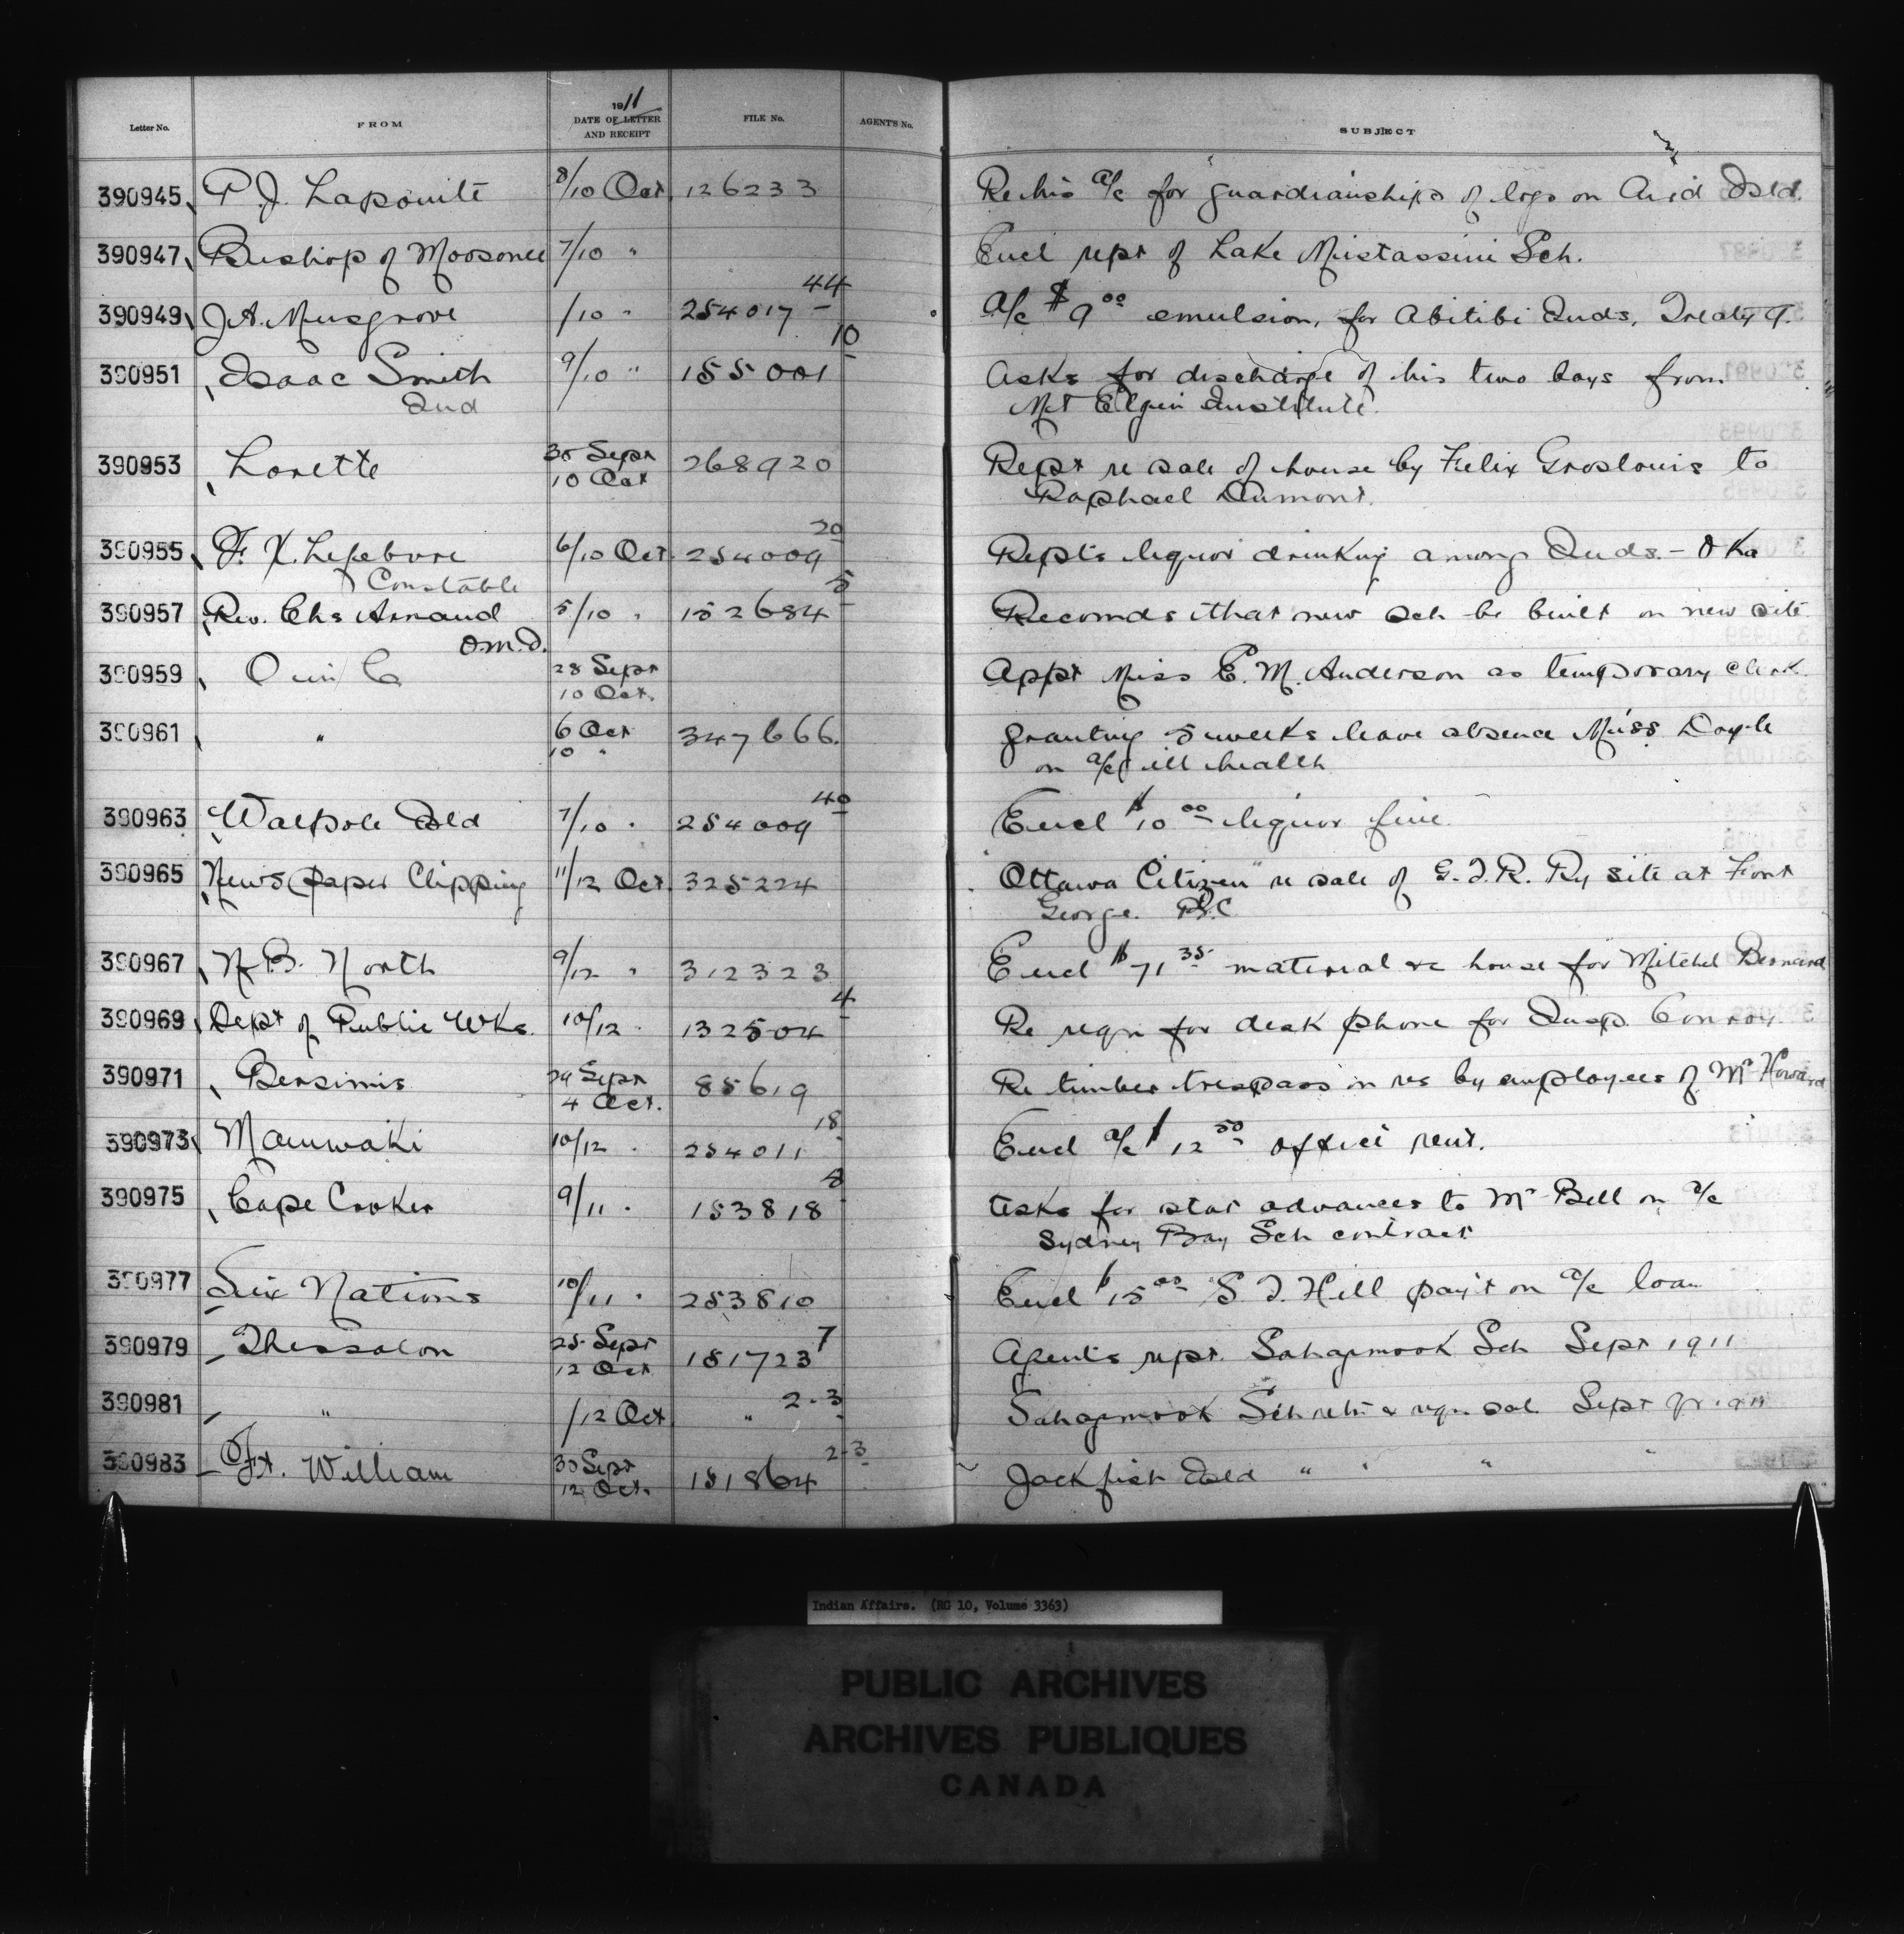 Letter No. FROM 1911 DATE OF LETTER AND RECEIPT FILE No. AGENT'S No. SUBJECT
390945 P. J. Lapointe 8/10 Oct 126233 Re his a/c for guardianships of logs on Isld.
390947 Bishop of Moosonee 7/10 " Encl rept of Lake Mistassini Sch.
390949 J A. Musgrove /10 " 254017 44 A/c $9 00 emulsion, for Abitibi Inds. Treaty 9.
390951 Isaac Smith 9/10 " 155001 10 Asks for discharge of his two boys from
Ind Mt Elgin Institute.
390953 Lorette 30 Sept 268920 Rept re sale of house by Felix Groslouis to
10 Oct Raphael Dumont.
390955 F. X. Lefebvre 6/10 Oct 254009 20 Repts liquor drinking among Inds. - Oka
Constable
390957 Rev. Chs Arnaud 5/10 " 152684 5 Recomds that new sch be built on new site
O.M.I.
390959 O in C 28 Sept Appt Miss E. M. Anderson as temporary clerk.
10 Oct.
390961 " 6 Oct 347666. granting 5 weeks leave absence Miss Doyle
10 " on a/c ill health
390963 Walpole Isld 7/10 " 254009 40 Encl $10 00 liquor fine
390965 News paper Clipping 11/12 Oct. 325224 "Ottawa Citizen" re sale of G.T.R. Ry site at Fort
George. B.C
390967 N. B. North 9/12 " 312323 Encl $71 35 material re house for Mitchel Bernard
390969 Dept of Public Wks. 10/12 " 132504 4 Re reqn for desk phone for Insp. Conroy.
390971 Bersimis 29 Sept 85619 Re timber trespass on res by employees of Mr Howard
4 Oct.
390973 Maniwaki 10/12 " 254011 18 Encl a/c $12 50 office rent.
390975 Cape Croker 9/11 " 153818 8 asks for advances to Mr Bell on a/c
Sydney Bay Sch contract
390977 Six Nations 10/11 " 253810 Encl $15 00 S. T. Hill pay't on a/c loan
390979 Thessalon 25 Sept 181723 7 Agents rept. Sahgamook Sch Sept 1911
12 Oct
390981 " /12 Oct " 2-3 Sahgamook Sch retn & reqn sal. Sept qr. 1911
390983 Ft. William 30 Sept 181864 2-3 Jackfish Isld " " "
12 Oct.
Indian Affairs. (RG 10, Volume 3363)
PUBLIC ARCHIVES
ARCHIVES PUBLIQUES
CANADA